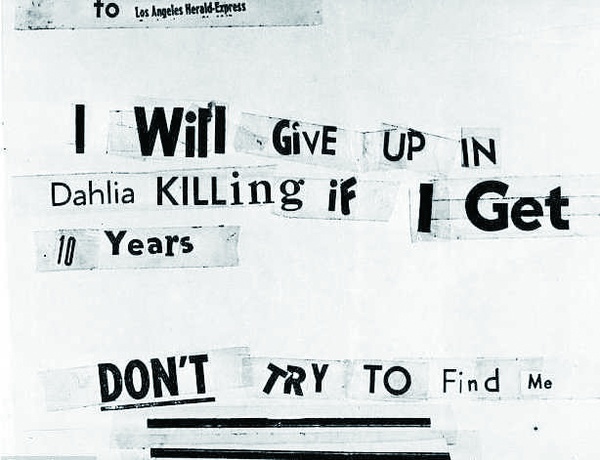 to Los Angeles Herald-Express
I Will GivE UP IN
Dahlia KILLing iF I Get
10 Years
DON'T TRY TO Find Me